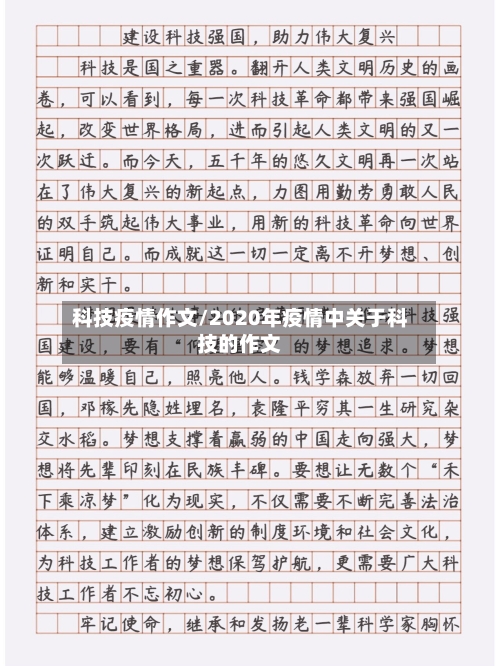 建设科技强国，助力伟大复兴
科技是国之重器。翻开人类文明历史的画
卷，可以看到，每一次科技革命都带来强国崛
起，改变世界格局，进而引起人类文明的又一
次跃迁。而今天，五千年的悠久文明再一次站
在了伟大复兴的新起点，力图用勤劳勇敢人民
的双手筑起伟大事业，用新的科技革命向世界
证明自己。而成就这一切一定离不开梦想、创
新和实干。
科技强
科技疫情作文/2020年疫情中关于科
技的作文
国建设，要有“
的梦想追求。梦想
能够温暖自己，照亮他人。钱学森放弃一切回
国，邓稼先隐姓埋名，袁隆平穷其一生研究杂
交水稻。梦想支撑着羸弱的中国走向强大，梦
想将先辈印刻在民族丰碑。要想让无数个“禾
下乘凉梦”化为现实，不仅需要不断完善法治
体系，建立激励创新的制度环境和社会文化，
为科技工作者的梦想保驾护航，更需要广大科
技工作者不忘初心。
牢记使命，继承和发扬老一辈科学家胸怀